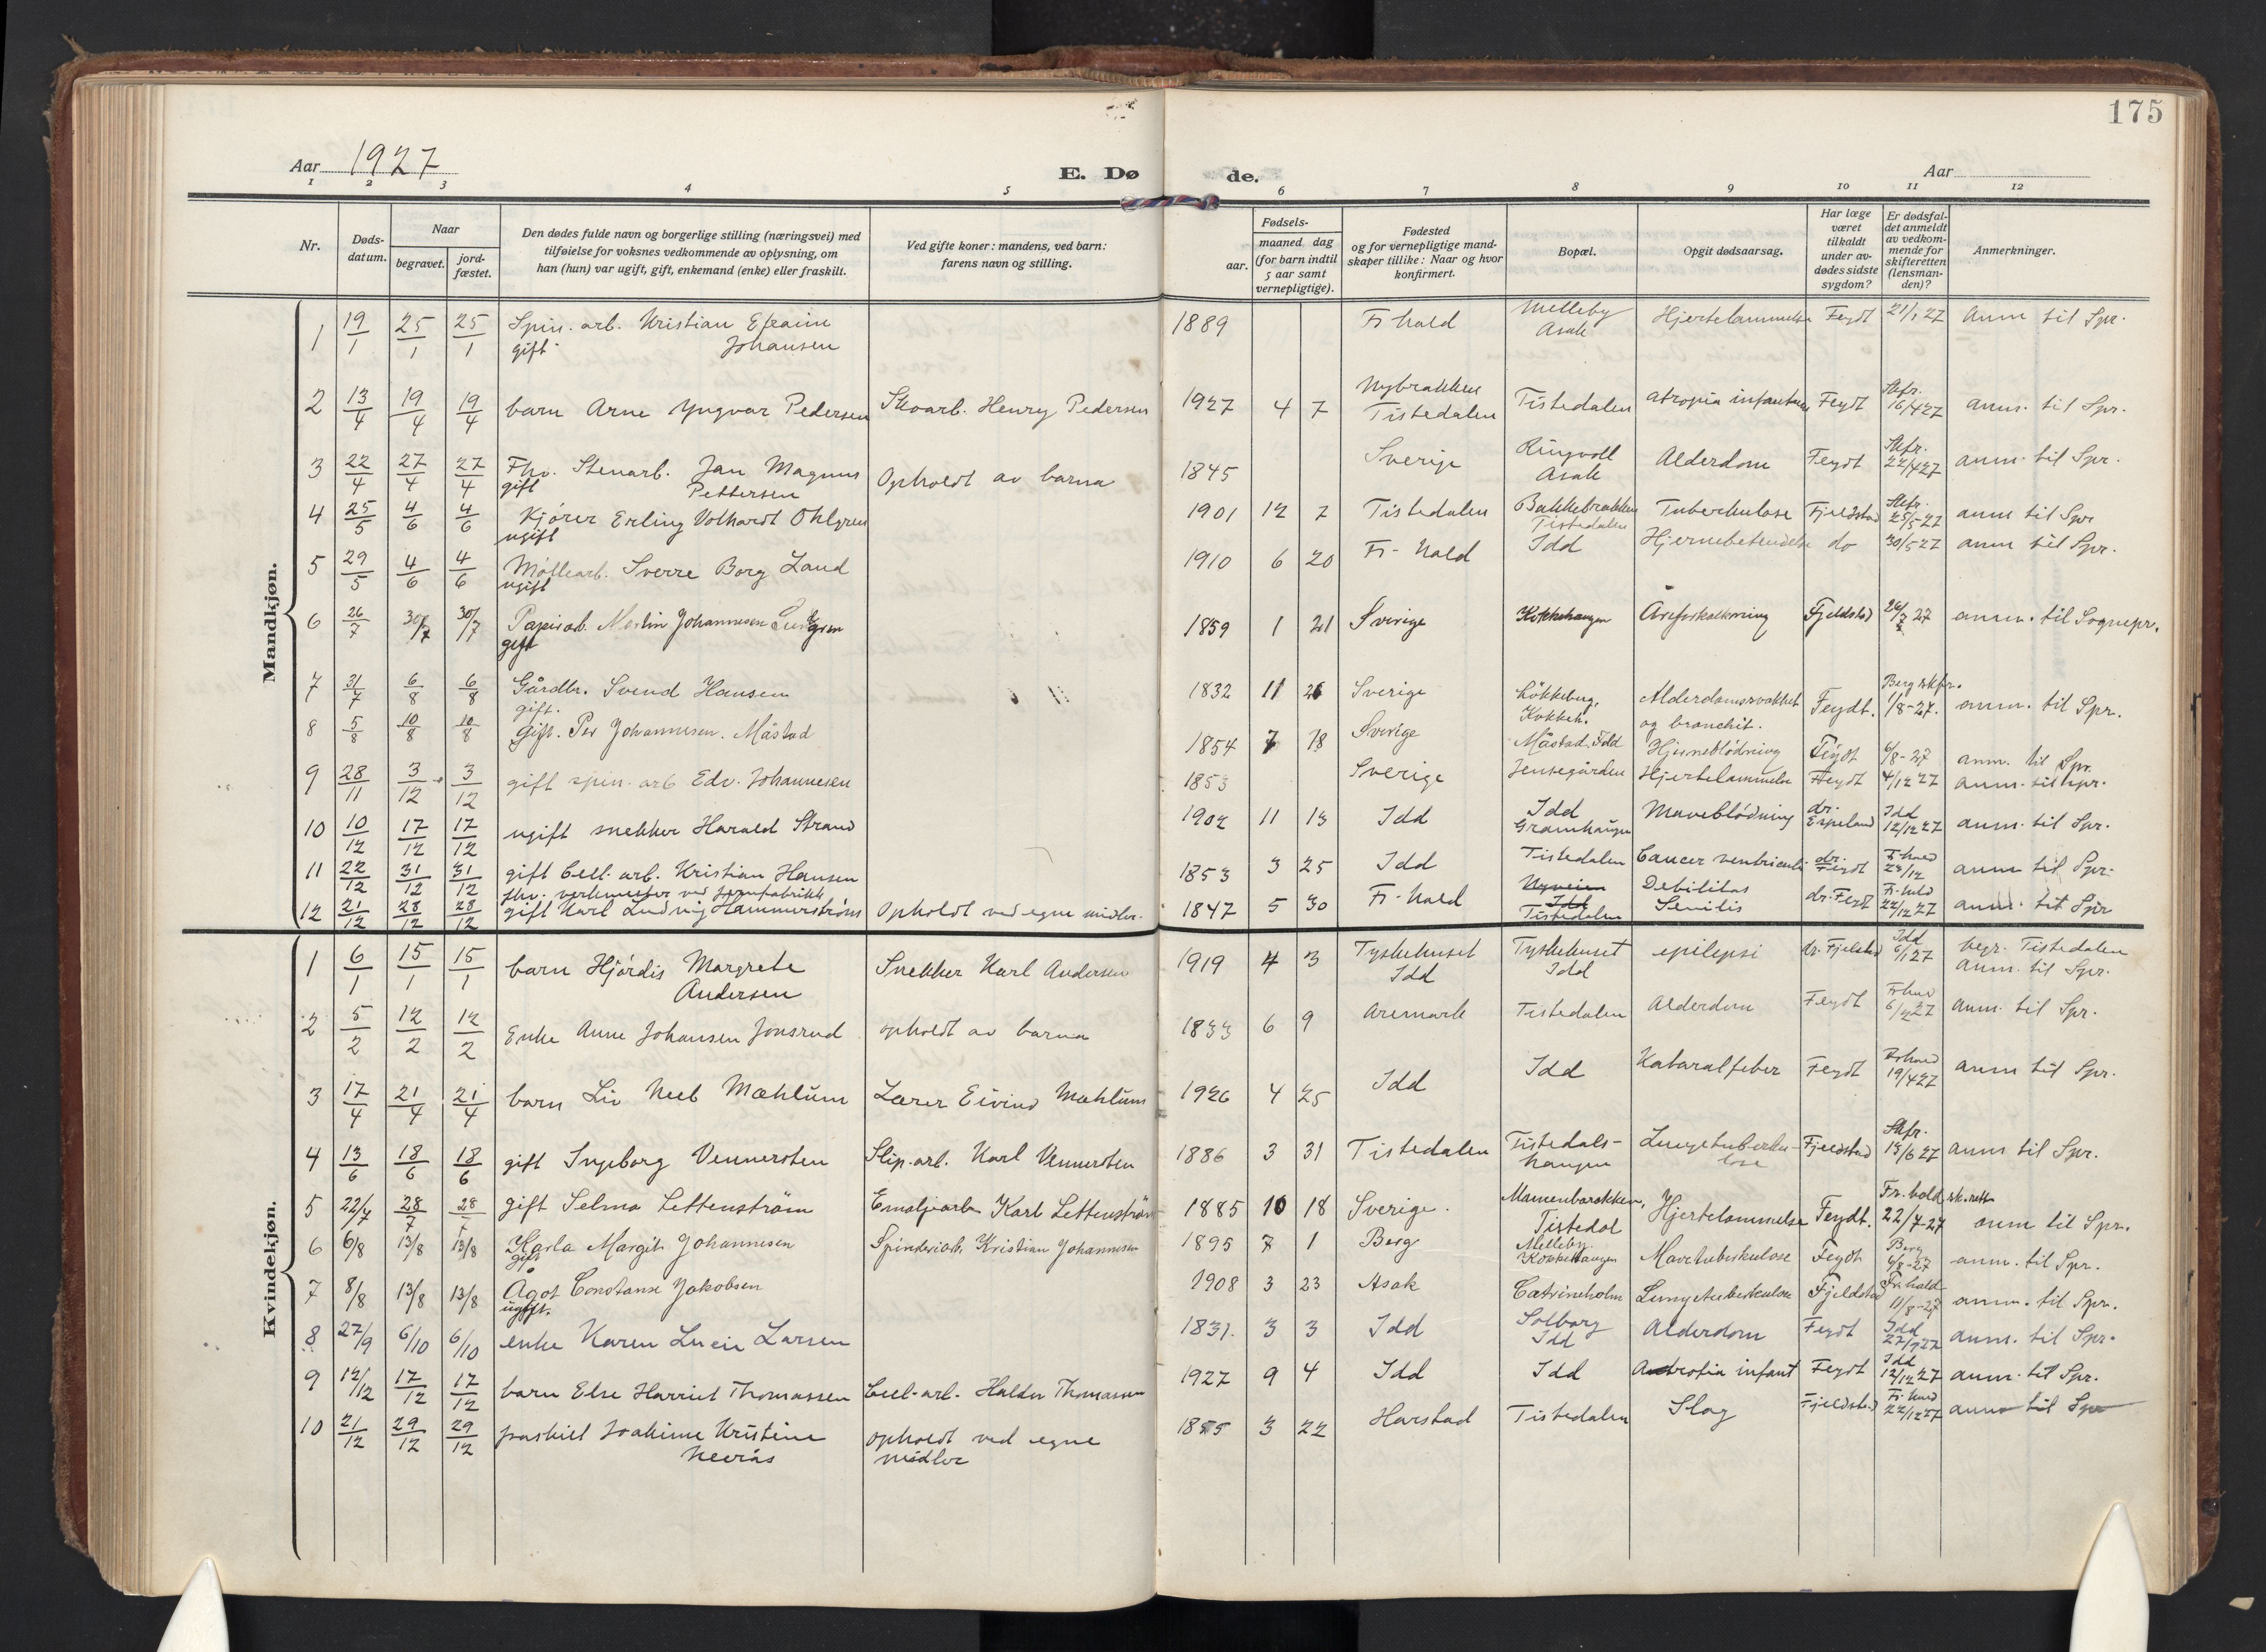 175
Aar 1927
E. Dø
de.
Aar
1 2 3 4 5 6 7 8 9 10 11 12
Nr.
Døds-
datum.
Naar
begravet.
jord-
fæstet.
Den dødes fulde navn og borgerlige stilling (næringsvei) med
tilføielse for voksnes vedkommende av oplysning, om
han (hun) var ugift, gift, enkemand (enke) eller fraskilt.
Ved gifte koner: mandens, ved barn:
farens navn og stilling.
Fødsels-
aar.
maaned dag
(for barn indtil
5 aar samt
vernepligtige).
Fødested
og for vernepligtige mand-
skaper tillike: Naar og hvor
konfirmert.
Bopæl.
Opgit dødsaarsag.
Har læge
været
tilkaldt
under av-
dødes sidste
sygdom?
Er dødsfal-
det anmeldt
av vedkom-
mende for
skifteretten
(lensman-
den)?
Anmerkninger.
Mandkjøn.
1 19/1 25/1 25/1 Spin. arb. Kristian Efraim 1889 Fr hald Melleby Hjertelammelse Feydt 21/1 27 Anm til Spr.
gift Johansen Asak
2 13/4 19/4 19/4 barn Arne Yngvar Pedersen Skoarb. Henry Pedersen 1927 4 7 Nybrakken Tistedalen atropia Feydt Skfr. anm. til Spr.
Tistedalen 16/4 27
3 22/4 27/4 27/4 Fhv. Stenarb. Jan Magnus Opholdt av barna 1845 Sverige Ringvoll Alderdom Feydt Skfr. anm. til Spr.
gift Pettersen Asak 22/4 27
4 25/5 4/6 4/6 Kjører Erling Volhardt Ohlgren 1901 12 7 Tistedalen Bakkebrakken Tuberkulose Fjeldstad Skfr. anm til Spr
ugift Tistedalen 25/5 27
5 29/5 4/6 4/6 Møllearb. Sverre Borg Land 1910 6 20 Fr-hald Idd Hjernebetendelse do 30/5 27 anm til Spr.
ugift
6 26/7 30/7 30/7 Papirarb. Martin Johannesen 1859 1 21 Sverige Kokkehaugen Åreforkalkning Fjeldstad 26/7 27 anm. til Sognepr.
gift
7 31/7 6/8 6/8 Gårdbr. Svend Hansen 1832 11 26 Sverige Løkkeberg, Alderdomssvakhet Feydt. Berg skfr. anm. til Spr.
gift. Kokkeh. og bronchit. 1/8-27.
8 5/8 10/8 10/8 gift. Per Johannesen. Måstad 1854 7 18 Sverige Måstad. Idd Hjerneblødning Feydt 6/8-27 anm. til Spr.
9 28/11 3/12 3/12 gift spin. arb Edv. Johannesen 1853 Sverige Jensegården Hjertelammelse Feydt 4/12 27 anm. til Spr.
10 10/12 17/12 17/12 ugift snekker Harald Strand 1902 11 13 Idd Idd Maveblødning dr. Espeland Idd anm. til Spr.
12/12 27
11 22/12 31/12 31/12 gift Cell. arb. Kristian Hansen 1853 3 25 Idd Tistedalen Cancer ventriculi dr. Feydt Fr. hald anm til Spr.
fhv. verkmester ved jernfabrikk
12 21/12 28/12 28/12 gift Karl Ludvig Hammerstrøm Opholdt ved egne midler. 1847 5 30 Fr-hald Nyveien Debilitas dr. Feydt Fr. hald anm. til Spr
Idd Senilis 22/12 27
Tistedalen
Kvindekjøn.
1 6/1 15/1 15/1 barn Hjørdis Margrete Snekker Karl Andersen 1919 4 3 Tyskehuset Tyskehuset epilepsi dr. Fjelstad Idd begr. Tistedalen
Andersen Idd Idd 6/1 27 Anm. til Spr.
2 5/2 12/2 12/2 Enke Anne Johansen Jonsrud opholdt av barna 1833 6 9 Aremark Tistedalen Alderdom Feydt 6/2 27 anm. til Spr.
3 17/4 21/4 21/4 barn Liv Neeb Mæhlum Lærer Eivind Mæhlum 1926 4 25 Idd Idd Kataralfeber Feydt 19/4 27 anm til Spr.
4 13/6 18/6 18/6 gift Ingeborg Vennersten Slip. arb. Karl Vennersten 1886 3 31 Tistedalen Tistedals- Lungetuberku- Fjeldstad Skfr. anm til Spr.
haugen lose 15/6 27
5 22/7 28/7 28/7 gift Selma Lettenström Emaljearb Karl Lettenström 1885 10 18 Sverige. Mamenbarakken, Hjertelammelse Feydt. Fr. hald sk.rett anm til Spr.
Tistedal 22/7-27
6 6/8 13/8 13/8 Karla Margit Johannesen Spinderiarb. Kristian Johannesen 1895 7 1 Berg Melleby. Mavetuberkulose Feydt Berg anm. til Spr.
gift Kokkehaugen 6/8-27
7 8/8 13/8 13/8 Ågot Constanse Jakobsen 1908 3 23 Asak Catrineholm Lungetuberkulose Fjeldstad Fr. hald anm. til Spr.
ugift. 11/8-27
8 27/9 6/10 6/10 enke Karen Lucie Larsen 1831. 3 3 Idd Solborg Alderdom Feydt Idd anm. til Spr.
Idd
9 12/12 17/12 17/12 barn Else Harriet Thomassen Cell-arb. Haldor Thomassen 1927 9 4 Idd Idd infant Feydt Idd anm. til Spr.
12/12 27
10 21/12 29/12 29/12 fraskilt Joakime Kristine opholdt ved egne 1855 3 22 Harstad Tistedalen Slag Fjeldstad Fr. hald anm til Spr
midler 22/12 27